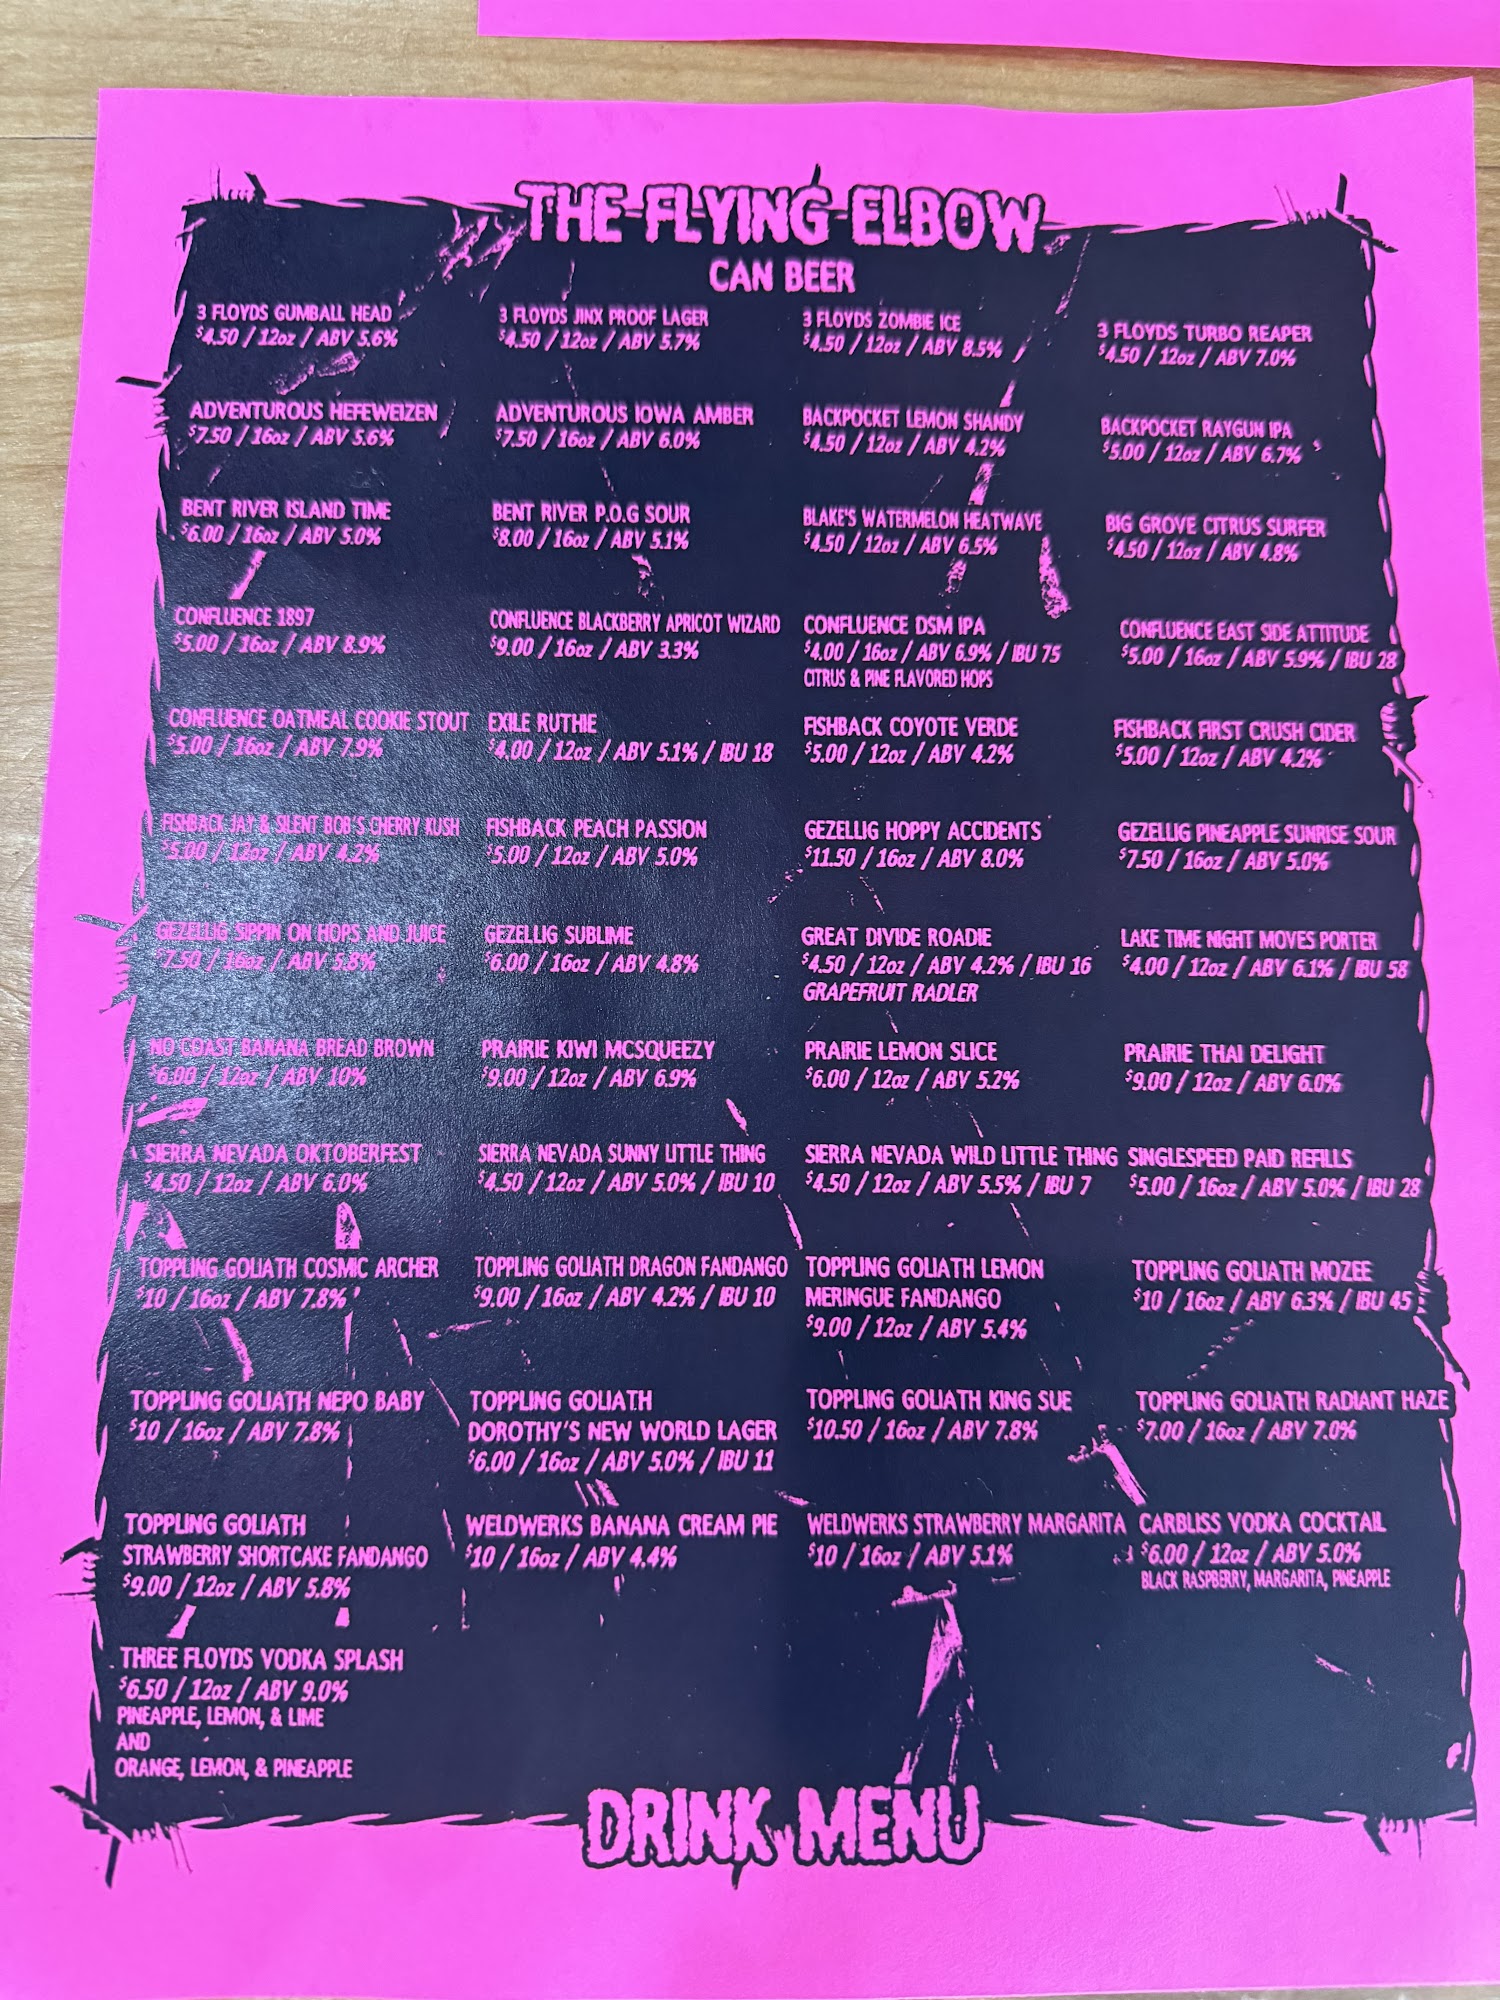 THE FLYING ELBOW
CAN BEER
3 FLOYDS GUMBALL HEAD
$4.50 / 12oz / ABV 5.6%
3 FLOYDS JINX PROOF LAGER
$4.50 / 12oz / ABV 5.7%
3 FLOYDS ZOMBIE ICE
$4.50 / 12oz / ABV 8.5%
3 FLOYDS TURBO REAPER
$4.50 / 12oz / ABV 7.0%
ADVENTUROUS HEFEWEIZEN
$7.50 / 16oz / ABV 5.6%
ADVENTUROUS IOWA AMBER
$7.50 / 16oz / ABV 6.0%
BACKPOCKET LEMON SHANDY
$4.50 / 12oz / ABV 4.2%
BACKPOCKET RAYGUN IPA
$5.00 / 12oz / ABV 6.7%
BENT RIVER ISLAND TIME
$6.00 / 16oz / ABV 5.0%
BENT RIVER P.O.G SOUR
$8.00 / 16oz / ABV 5.1%
BLAKE'S WATERMELON HEATWAVE
$4.50 / 12oz / ABV 6.5%
BIG GROVE CITRUS SURFER
$4.50 / 12oz / ABV 4.8%
CONFLUENCE 1897
$5.00 / 16oz / ABV 8.9%
CONFLUENCE BLACKBERRY APRICOT WIZARD
$9.00 / 16oz / ABV 3.3%
CONFLUENCE DSM IPA
$4.00 / 16oz / ABV 6.9% / IBU 75
CITRUS & PINE FLAVORED HOPS
CONFLUENCE EAST SIDE ATTITUDE
$5.00 / 16oz / ABV 5.9% / IBU 28
CONFLUENCE OATMEAL COOKIE STOUT
$5.00 / 16oz / ABV 7.9%
EXILE RUTHIE
$4.00 / 12oz / ABV 5.1% / IBU 18
FISHBACK COYOTE VERDE
$5.00 / 12oz / ABV 4.2%
FISHBACK FIRST CRUSH CIDER
$5.00 / 12oz / ABV 4.2%
FISHBACK JAY & SILENT BOB'S CHERRY KUSH
$5.00 / 12oz / ABV 4.2%
FISHBACK PEACH PASSION
$5.00 / 12oz / ABV 5.0%
GEZELLIG HOPPY ACCIDENTS
$11.50 / 16oz / ABV 8.0%
GEZELLIG PINEAPPLE SUNRISE SOUR
$7.50 / 16oz / ABV 5.0%
GEZELLIG SIPPIN ON HOPS AND JUICE
$7.50 / 16oz / ABV 5.8%
GEZELLIG SUBLIME
$6.00 / 16oz / ABV 4.8%
GREAT DIVIDE ROADIE
$4.50 / 12oz / ABV 4.2% / IBU 16
GRAPEFRUIT RADLER
LAKE TIME NIGHT MOVES PORTER
$4.00 / 12oz / ABV 6.1% / IBU 58
NO COAST BANANA BREAD BROWN
$6.00 / 12oz / ABV 10%
PRAIRIE KIWI MCSQUEEZY
$9.00 / 12oz / ABV 6.9%
PRAIRIE LEMON SLICE
$6.00 / 12oz / ABV 5.2%
PRAIRIE THAI DELIGHT
$9.00 / 12oz / ABV 6.0%
SIERRA NEVADA OKTOBERFEST
$4.50 / 12oz / ABV 6.0%
SIERRA NEVADA SUNNY LITTLE THING
$4.50 / 12oz / ABV 5.0% / IBU 10
SIERRA NEVADA WILD LITTLE THING
$4.50 / 12oz / ABV 5.5% / IBU 7
SINGLESPEED PAID REFILLS
$5.00 / 16oz / ABV 5.0% / IBU 28
TOPPLING GOLIATH COSMIC ARCHER
$10 / 16oz / ABV 7.8%
TOPPLING GOLIATH DRAGON FANDANGO
$9.00 / 16oz / ABV 4.2% / IBU 10
TOPPLING GOLIATH LEMON
MERINGUE FANDANGO
$9.00 / 12oz / ABV 5.4%
TOPPLING GOLIATH MOZEE
$10 / 16oz / ABV 6.3% / IBU 45
TOPPLING GOLIATH NEPO BABY
$10 / 16oz / ABV 7.8%
TOPPLING GOLIATH
DOROTHY'S NEW WORLD LAGER
$6.00 / 16oz / ABV 5.0% / IBU 11
TOPPLING GOLIATH KING SUE
$10.50 / 16oz / ABV 7.8%
TOPPLING GOLIATH RADIANT HAZE
$7.00 / 16oz / ABV 7.0%
TOPPLING GOLIATH
STRAWBERRY SHORTCAKE FANDANGO
$9.00 / 12oz / ABV 5.8%
WELDWERKS BANANA CREAM PIE
$10 / 16oz / ABV 4.4%
WELDWERKS STRAWBERRY MARGARITA
$10 / 16oz / ABV 5.1%
CARBLISS VODKA COCKTAIL
$6.00 / 12oz / ABV 5.0%
BLACK RASPBERRY, MARGARITA, PINEAPPLE
THREE FLOYDS VODKA SPLASH
$6.50 / 12oz / ABV 9.0%
PINEAPPLE, LEMON, & LIME
AND
ORANGE, LEMON, & PINEAPPLE
DRINK MENU